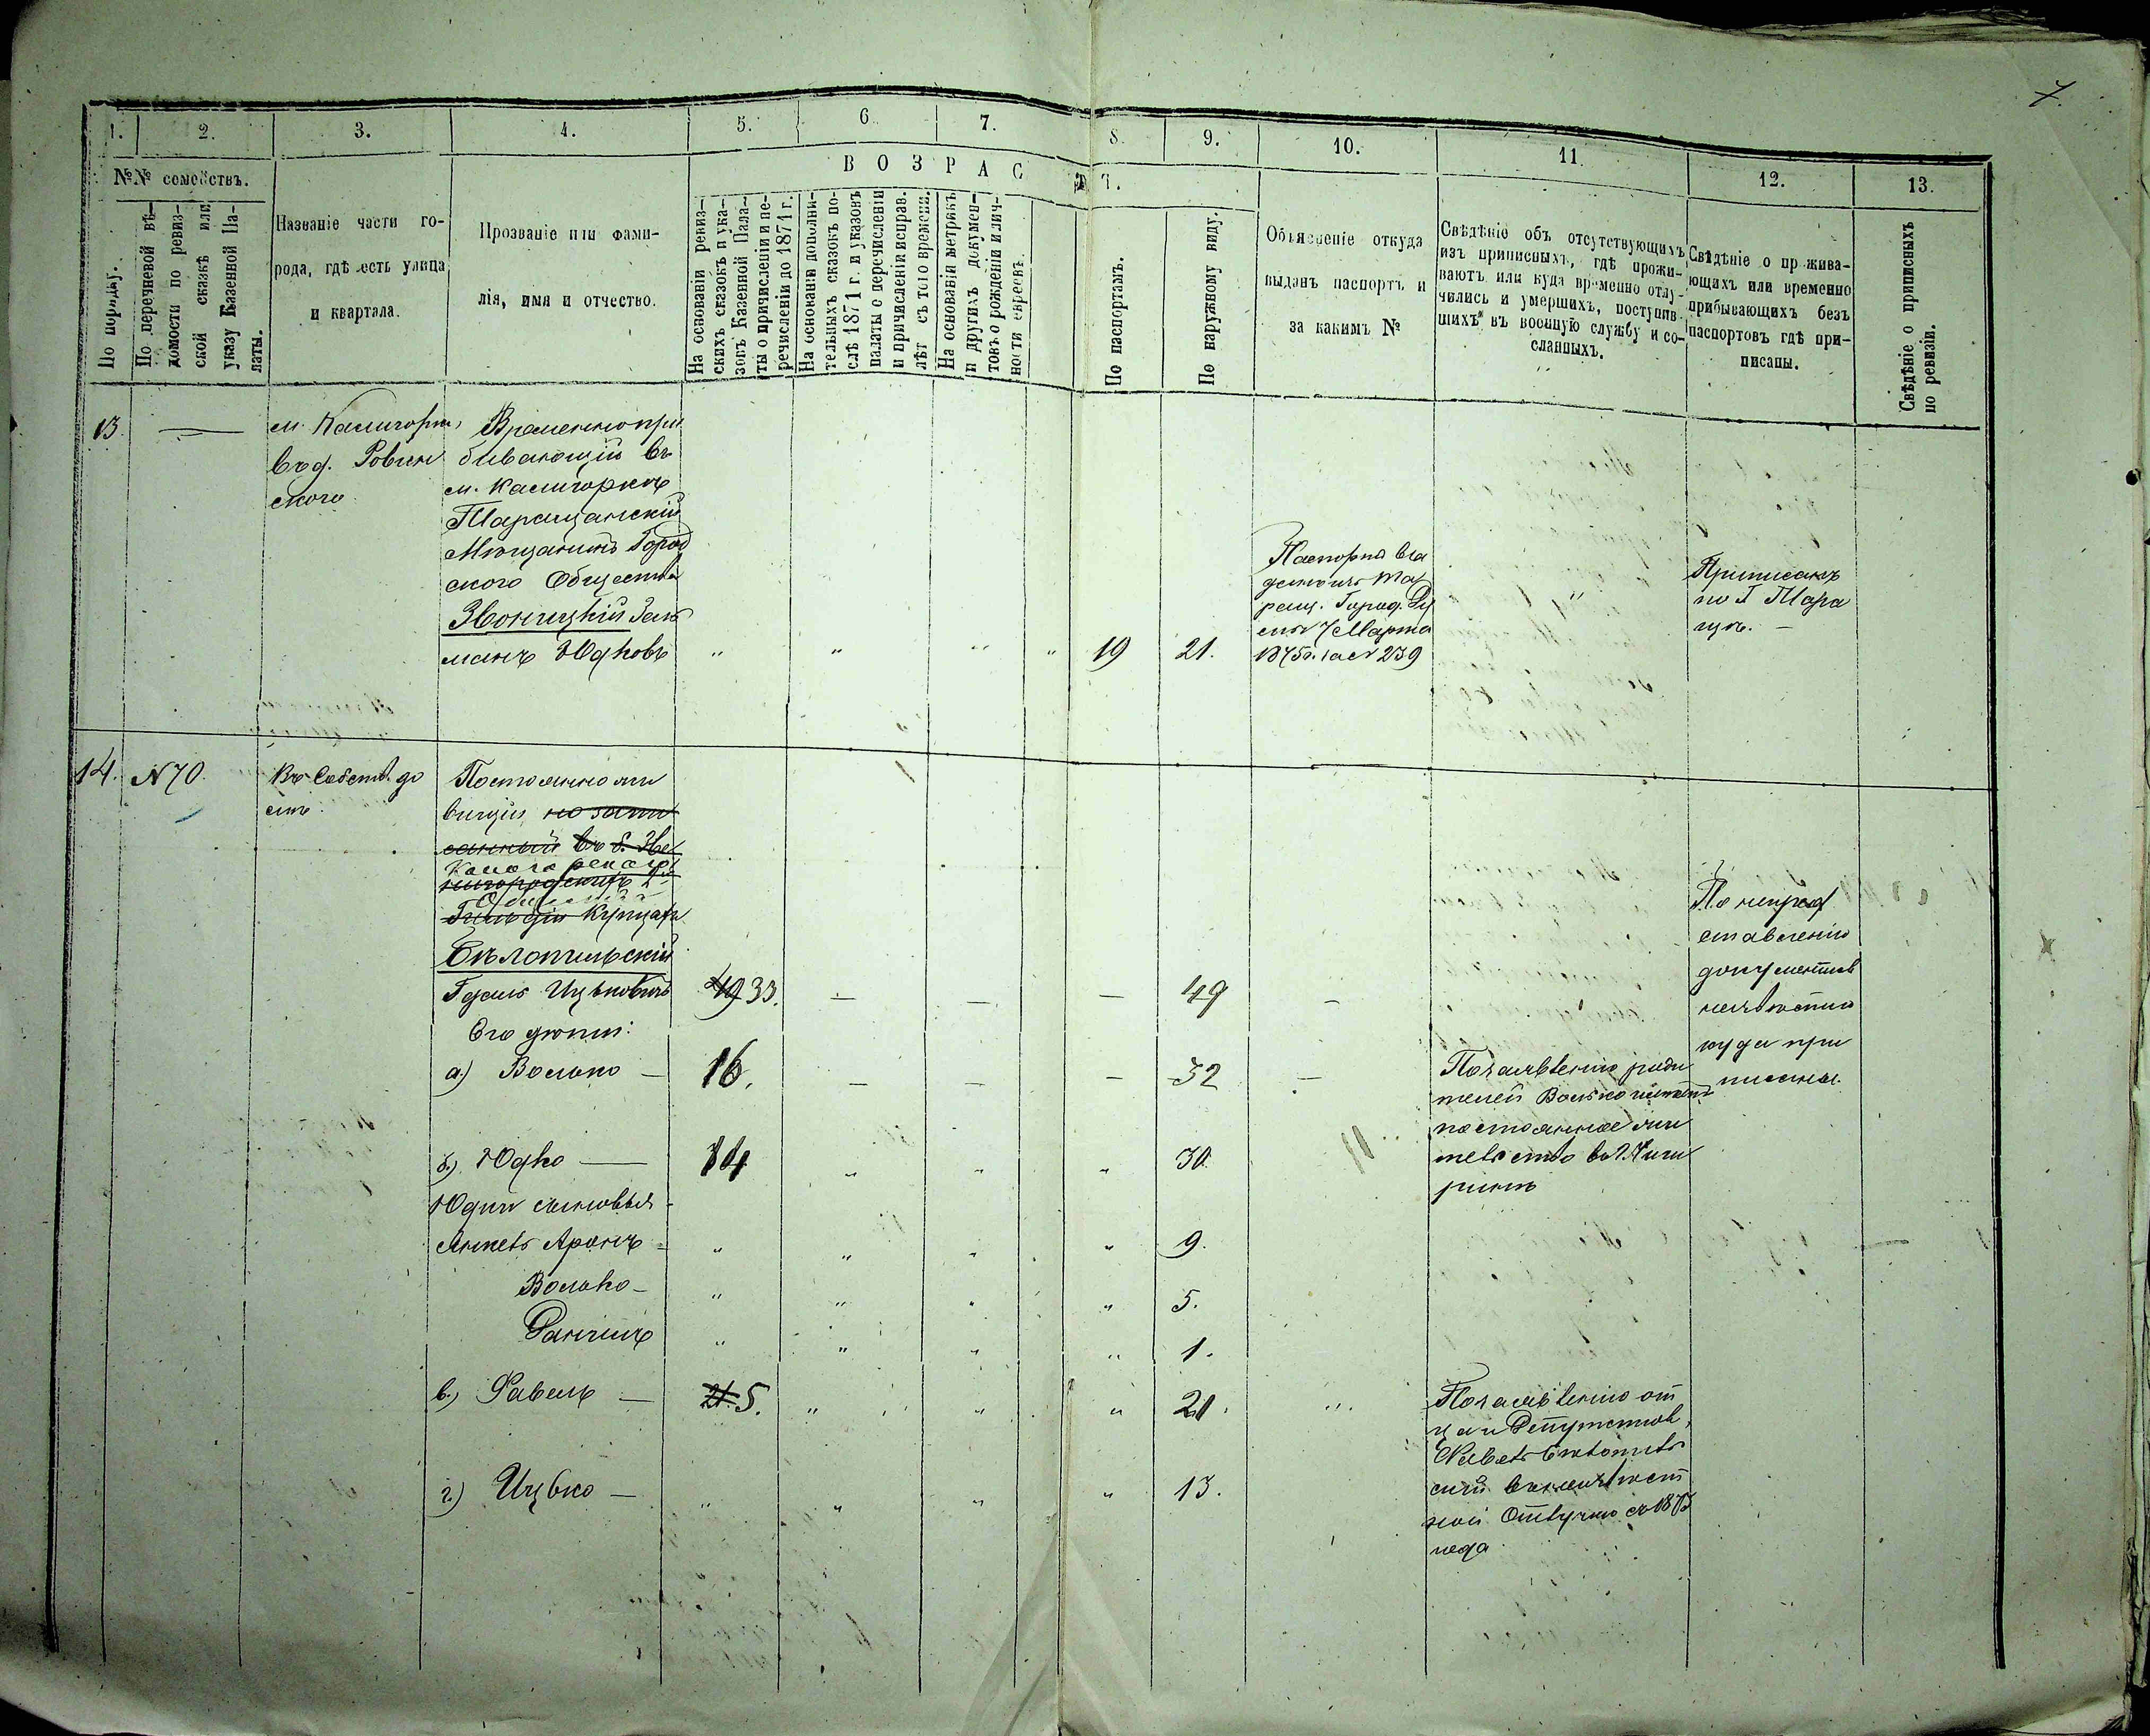 7.
1. 2. 3. 4. 5. 6. 7. 8. 9. 10. 11. 12. 13.
№№ семействъ.
По порядку.
По перечневой вѣ-
домости по ревиз-
ской сказкѣ или
указу Казенной Па-
латы.
Названіе части го-
рода, гдѣ есть улица
и квартала.
Прозваніе или фами-
лія, имя и отчество.
ВОЗРАСТ.
На основаніи ревиз-
скихъ сказокъ и ука-
зовъ Казенной Пала-
ты о причисленіи и пе-
речисленіи до 1871 г.
На основаніи дополни-
тельныхъ сказокъ по-
слѣ 1871 г. и указовъ
палаты о перечисленіи
и причисленіи исправ.
лѣт съ того времени.
На основаніи метрикъ
и другихъ докумен-
товъ о рожденіи и лич-
ности евреевъ.
По паспортамъ.
По наружному виду.
Объясненіе откуда
выданъ паспортъ и
за какимъ №
Свѣдѣніе объ отсутствующихъ
изъ приписныхъ, гдѣ прожи-
ваютъ или куда временно отлу-
чились и умершихъ, поступив-
шихъ въ военную службу и со-
сланныхъ.
Свѣдѣніе о прожива-
ющихъ или временно
прибывающихъ безъ
паспортовъ гдѣ при-
писаны.
Свѣдѣніе о приписныхъ
по ревизіи.
13. —
м. Калигорка,
въ д. Ровин
ского
Временно при
бивающій въ
м. Калигоркѣ
Таращанскій
Мѣщанинъ Город
ского Общества
Звоницкій Зель
манъ Юдковъ " " " " 19 21.
Паспортъ
Таращ. Город. Ду
мы 7 Марта
1875 г. за № 239
Приписанъ
по г Тара
щѣ. —
14. №70.
Въ Собств. до
мѣ
Постоянно жи
вущій но запи
санный въ
Гильдіи Купцахъ
Бѣлопильскій
Гдаль Ицьковичъ 49 33. — — — 49 —
Его дѣти:
а.) Волько — 16. — — — 32 —
б.) Юдко — 14 " " " 30.
Юдки сыновья
Аронъ — " " " " 9.
Волько — " " " " 5.
" " " " 1.
в.) Равель — 21. 5. " " " 21. "
г.) Ицько — " " " " 13.
По заявленію роди
телей Волько имѣетъ
постоянное жи
тельство въ г. Чиги
ринѣ
По заявленію от
ца и Депутатовъ,
ской отлучкѣ съ 187
года
По непред
ставленію
документовъ
неизвѣстно
куда при
писаны.